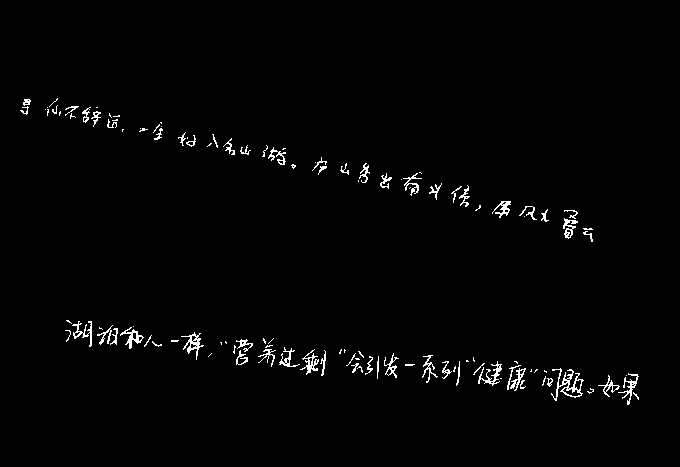 寻仙不辞远,一生好入名山游。庐山秀出南斗傍,屏风九叠云
湖泊和人一样,"营养过剩"会引发一系列"健康"问题。如果